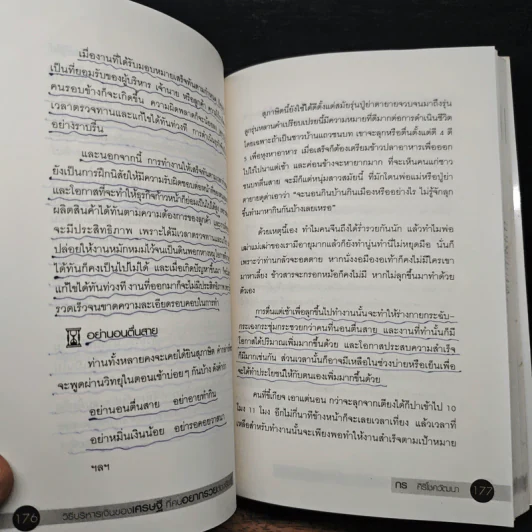 เมื่องานที่ได้รับมอบหมายเสร็จทันตามกำหนด
เป็นที่ยอมรับของผู้บริหาร เจ้านาย หรือลูกค้า
คนรอบข้างก็จะเกิดขึ้น ความผิดพลาดก็จะน้อยลง
เวลาตรวจทานและแก้ไขได้ทันท่วงที
อย่างราบรื่น
และนอกจากนี้ การทำงานให้เสร็จทันตาม
ยังเป็นการฝึกนิสัยให้มีความรับผิดชอบต่อหน้าที่
และโอกาสที่จะทำให้ธุรกิจก้าวหน้าก็ย่อมเป็นไปได้
ผลิตสินค้าได้ทันตามความต้องการของลูกค้า
จะมีประสิทธิภาพ เพราะได้มีเวลาตรวจทานและ
ปล่อยให้งานหมักหมมไว้จนเป็นดินพอกหางหมู
ได้ทันก็คงเป็นไปไม่ได้ และเมื่อเกิดปัญหาขึ้นมา
แก้ไขได้ทันท่วงที งานที่ออกมาก็จะไม่มีประสิทธิภาพ
รวดเร็วจนขาดความละเอียดรอบคอบในการทำ
อย่านอนตื่นสาย
ท่านทั้งหลายคงจะเคยได้ยินสุภาษิต
จะพูดผ่านวิทยุในตอนเช้าบ่อยๆ กันบ้าง ดังต่อ
อย่านอนตื่นสาย อย่าอายทำกิน
อย่าหมิ่นเงินน้อย อย่ารอคอยวาสนา
ฯลฯ
176 วิธีบริหารเงินของเศรษฐี ที่คนอยากรวย
สุภาษิตนี้ยังใช้ได้ดีตั้งแต่สมัยรุ่นปู่ย่าตายายจวบจนมาถึงรุ่น
ลูกรุ่นหลานคำเปรียบเปรยนี้มีความหมายที่ดีมากต่อการดำเนินชีวิต
โดยเฉพาะถ้าเป็นชาวบ้านแถวชนบท เขาจะลุกหรือตื่นตั้งแต่ตี 4 ตี
5 เพื่อหุงหาอาหาร เมื่อเสร็จก็ต้องเตรียมข้าวปลาอาหารเพื่อออก
ไปไร่ไปนาแต่เช้า และค่อนข้างจะหายากมาก ที่จะเห็นคนแก่ชาว
ชนบทตื่นสาย จะมีก็แต่หนุ่มสาวสมัยนี้ ที่มักโดนพ่อแม่หรือปู่ย่า
ตายายดุด่าเอาว่า “จะนอนกินบ้านกินเมืองหรืออย่างไร ไม่รู้จักลุก
ขึ้นทำมาหากินกันบ้างเลยเหรอ”
ด้วยเหตุนี้เอง ทำไมคนจีนถึงได้ร่ำรวยกันนัก แล้วทำไมพ่อ
เฒ่าแม่เฒ่าของเรามีอายุมากแล้วก็ยังทำนู่นทำนี่ไม่หยุดมือ นั่นก็
เพราะว่าท่านกลัวจะอดตาย หากนั่งงอมืองอเท้าก็คงไม่มีใครเขา
มาหาเลี้ยง ข้าวสาะจะกรอกหม้อก็คงไม่มี หากไม่ลุกขึ้นมาทำด้วย
ตัวเอง
การตื่นแต่เช้าเพื่อลุกขึ้นไปทำงานนั้นจะทำให้ร่างกายกระฉับ-
กระเฉงกระชุ่มกระชวยกว่าคนที่นอนตื่นสาย และงานที่ทำนั้นก็มี
โอกาสได้ปริมาณเพิ่มมากขึ้นด้วย และโอกาสประสบความสำเร็จ
ก็มีมากเช่นกัน ส่วนเวลานั้นก็อาจมีเหลือในช่วงบ่ายหรือเย็นเพื่อ
จะได้ทำประโยชน์ให้กับตนเองเพิ่มมากขึ้นด้วย
คนที่ขี้เกียจ เอาแต่นอน กว่าจะลุกจากเตียงได้ก็ปาเข้าไป 10
โมง 11 โมง อีกไม่กี่นาทีข้างหน้าก็จะเลยเวลาเที่ยง แล้วเวลาที่
เหลือสำหรับทำงานนั้นจะเพียงพอทำให้งานสำเร็จตามเป้าหมาย
กร ศิริโชควัฒนา 177